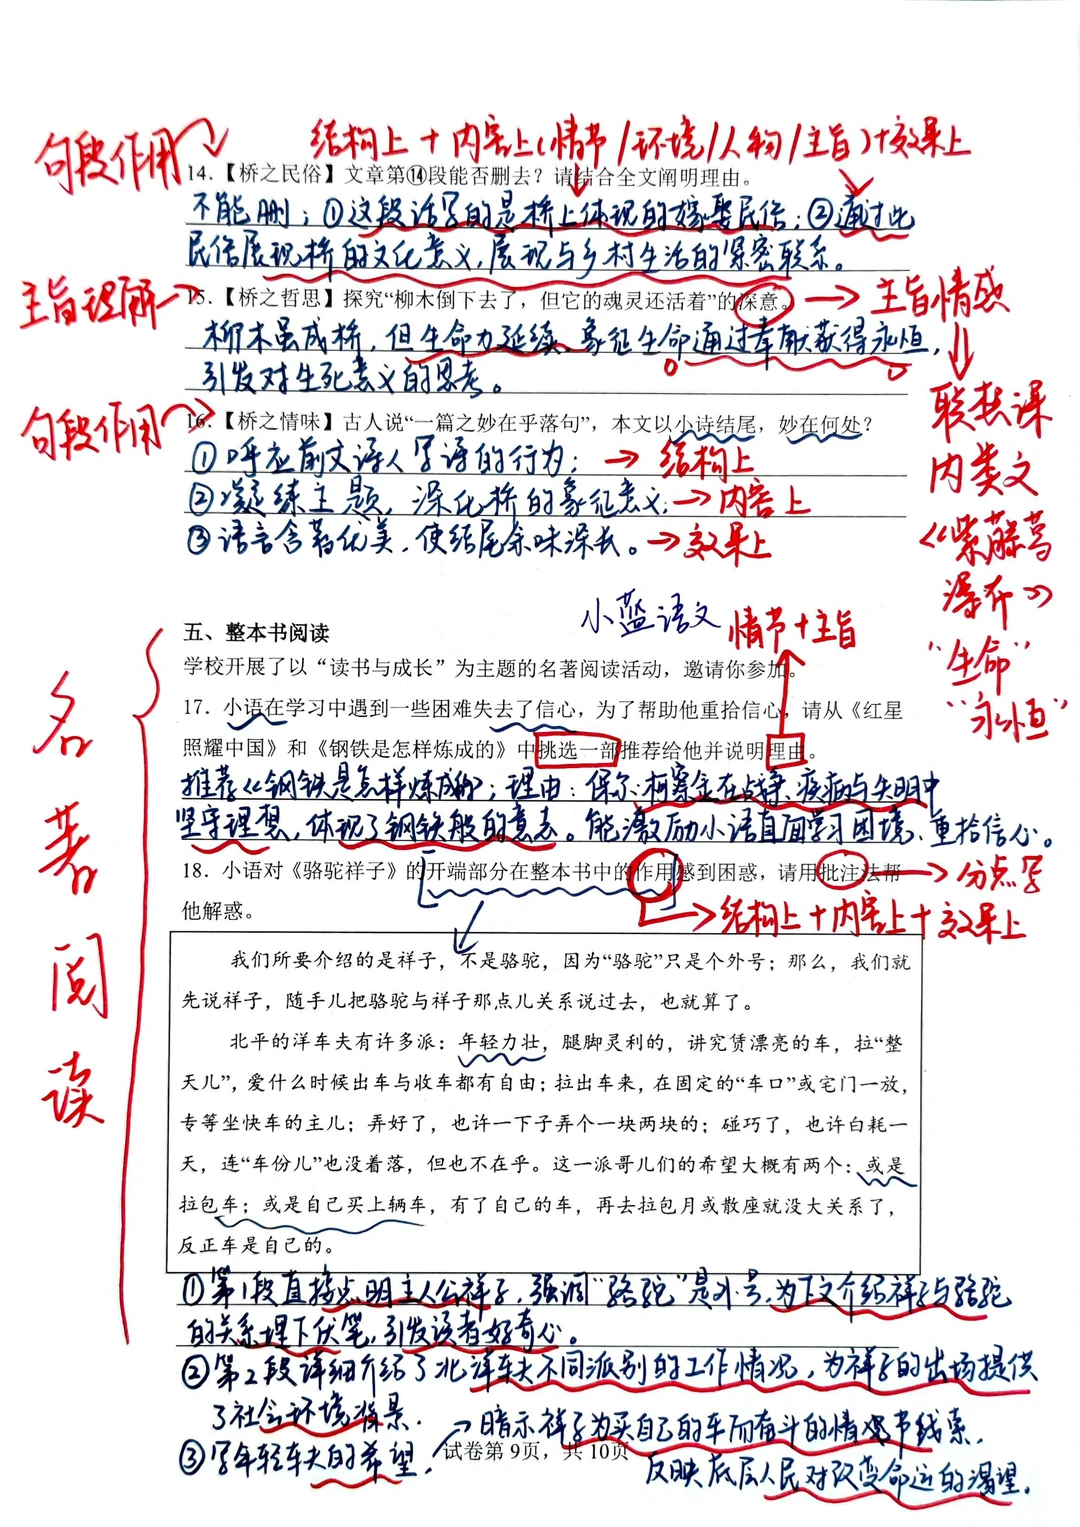 句段作用
结构上＋内容上(情节/环境/人物/主旨)＋效果上
14.【桥之民俗】文章第⑭段能否删去？请结合全文阐明理由。
不能删；①这段话写的是桥上体现的嫁娶民俗；②通过此
民俗展现桥的文化意义，展现与乡村生活的紧密联系。
主旨理解
15.【桥之哲思】探究“柳木倒下去了，但它的魂灵还活着”的深意。
→主旨情感
柳木虽成桥，但生命力延续，象征生命通过奉献获得永恒，
引发对生死意义的思考。
联想课
内类文
《紫藤萝
瀑布》
“生命”
“永恒”
句段作用
16.【桥之情味】古人说“一篇之妙在乎落句”，本文以小诗结尾，妙在何处？
①呼应前文诗人写诗的行为；→结构上
②凝练主题，深化桥的象征意义；→内容上
③语言含蓄优美，使结尾余味深长。→效果上
小蓝语文
情节＋主旨
名著阅读
五、整本书阅读
学校开展了以“读书与成长”为主题的名著阅读活动，邀请你参加。
17．小语在学习中遇到一些困难失去了信心，为了帮助他重拾信心，请从《红星
照耀中国》和《钢铁是怎样炼成的》中挑选一部推荐给他并说明理由。
推荐《钢铁是怎样炼成的》；理由：保尔·柯察金在战争、疾病与失明中
坚守理想，体现了钢铁般的意志。能激励小语直面学习困境、重拾信心。
18．小语对《骆驼祥子》的开端部分在整本书中的作用感到困惑，请用批注法帮
→分点写
他解惑。
→结构上＋内容上＋效果上
我们所要介绍的是祥子，不是骆驼，因为“骆驼”只是个外号；那么，我们就
先说祥子，随手儿把骆驼与祥子那点儿关系说过去，也就算了。
北平的洋车夫有许多派：年轻力壮，腿脚灵利的，讲究赁漂亮的车，拉“整
天儿”，爱什么时候出车与收车都有自由；拉出车来，在固定的“车口”或宅门一放，
专等坐快车的主儿；弄好了，也许一下子弄个一块两块的；碰巧了，也许白耗一
天，连“车份儿”也没着落，但也不在乎。这一派哥儿们的希望大概有两个：或是
拉包车；或是自己买上辆车，有了自己的车，再去拉包月或散座就没大关系了，
反正车是自己的。
①第1段直接点明主人公祥子，强调“骆驼”是外号，为下文介绍祥子与骆驼
的关系埋下伏笔，引发读者好奇心。
②第2段详细介绍了北洋车夫不同派别的工作情况，为祥子的出场提供
了社会环境背景．
→暗示祥子为买自己的车而奋斗的情节线索．
③写年轻车夫的希望，
试卷第9页，共10页
反映底层人民对改变命运的渴望。